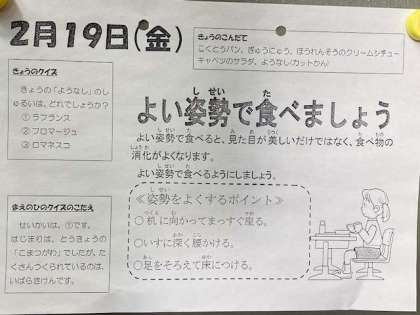 2月19日(金)
きょうのこんだて
こくとうパン、ぎゅうにゅう、ほうれんそうのクリームシチュー
キャベツのサラダ、ようなし(カットかん)
きょうのクイズ
きょうの「ようなし」のし
ゅるいは、どれでしょうか?
① ラフランス
② フロマージュ
③ ロマネスコ
よい姿勢で食べましょう
よい姿勢で食べると、見た目が美しいだけではなく、食べ物の
消化がよくなります。
よい姿勢で食べるようにしましょう。
≪姿勢をよくするポイント≫
○机に向かってまっすぐ座る。
○いすに深く腰かける。
○足をそろえて床につける。
まえのひのクイズのこたえ
せいかいは、①です。
はじまりは、とうきょうの
「こまつがわ」でしたが、た
くさんつくられているのは、
いばらきけんです。